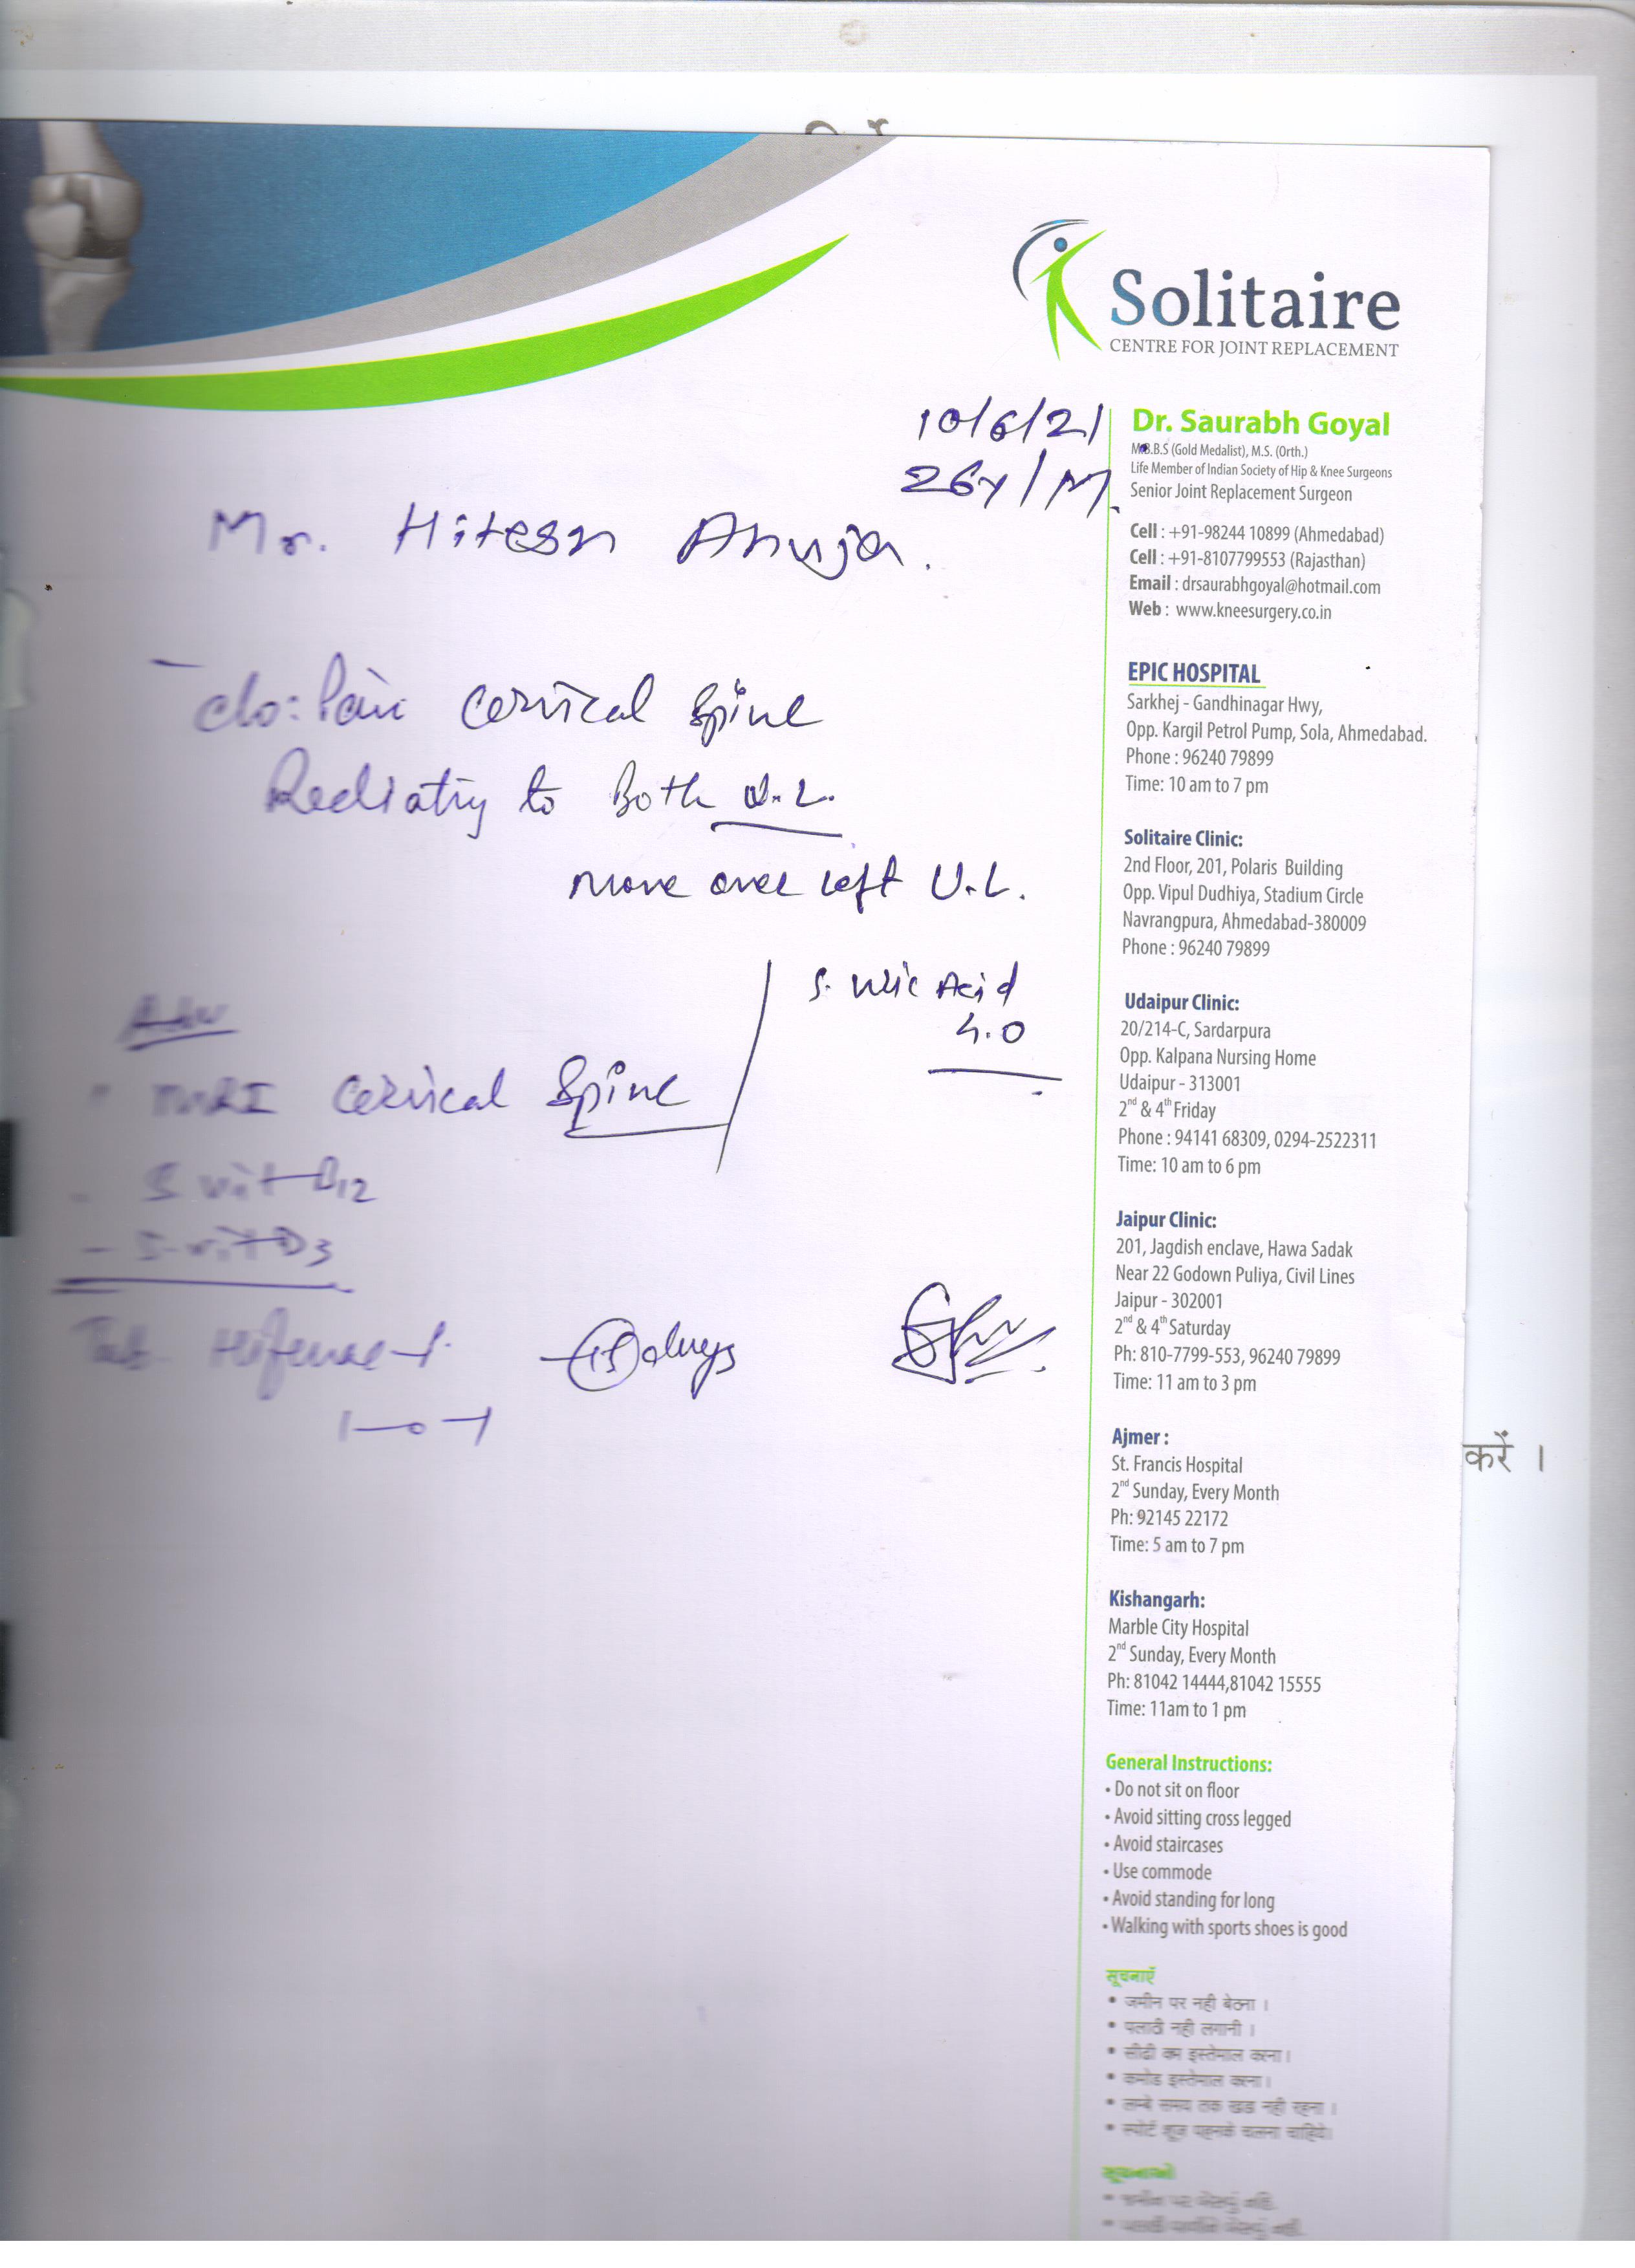 Solitaire
CENTRE FOR JOINT REPLACEMENT
10/6/21
26y/M.
Mr. Hitesh Ahuja.
c/o: Pain Cervical Spine
Radiating to Both U.L.
more over left U.L.
Adv
MRI Cervical Spine
S. Uric Acid
4.0
S vit B12
- S. vit D3
Tab.
15 days
1-0-1
Dr. Saurabh Goyal
M.B.B.S (Gold Medalist), M.S. (Orth.)
Life Member of Indian Society of Hip & Knee Surgeons
Senior Joint Replacement Surgeon
Cell : +91-98244 10899 (Ahmedabad)
Cell : +91-8107799553 (Rajasthan)
Email : drsaurabhgoyal@hotmail.com
Web : www.kneesurgery.co.in
EPIC HOSPITAL
Sarkhej - Gandhinagar Hwy,
Opp. Kargil Petrol Pump, Sola, Ahmedabad.
Phone : 96240 79899
Time: 10 am to 7 pm
Solitaire Clinic:
2nd Floor, 201, Polaris Building
Opp. Vipul Dudhiya, Stadium Circle
Navrangpura, Ahmedabad-380009
Phone : 96240 79899
Udaipur Clinic:
20/214-C, Sardarpura
Opp. Kalpana Nursing Home
Udaipur - 313001
2nd & 4th Friday
Phone : 94141 68309, 0294-2522311
Time: 10 am to 6 pm
Jaipur Clinic:
201, Jagdish enclave, Hawa Sadak
Near 22 Godown Puliya, Civil Lines
Jaipur - 302001
2nd & 4th Saturday
Ph: 810-7799-553, 96240 79899
Time: 11 am to 3 pm
Ajmer :
St. Francis Hospital
2nd Sunday, Every Month
Ph: 92145 22172
Time: 5 am to 7 pm
करें ।
Kishangarh:
Marble City Hospital
2nd Sunday, Every Month
Ph: 81042 14444,81042 15555
Time: 11am to 1 pm
General Instructions:
• Do not sit on floor
• Avoid sitting cross legged
• Avoid staircases
• Use commode
• Avoid standing for long
• Walking with sports shoes is good
सूचनाएँ
• जमीन पर नही बेठना ।
• पलाठी नही लगानी ।
• सीढी कम इस्तेमाल करना।
• कमोड इस्तेमाल करना।
• लम्बे समय तक खडा नही रहना ।
• स्पोर्ट शूज पहनके चलना चाहिये।